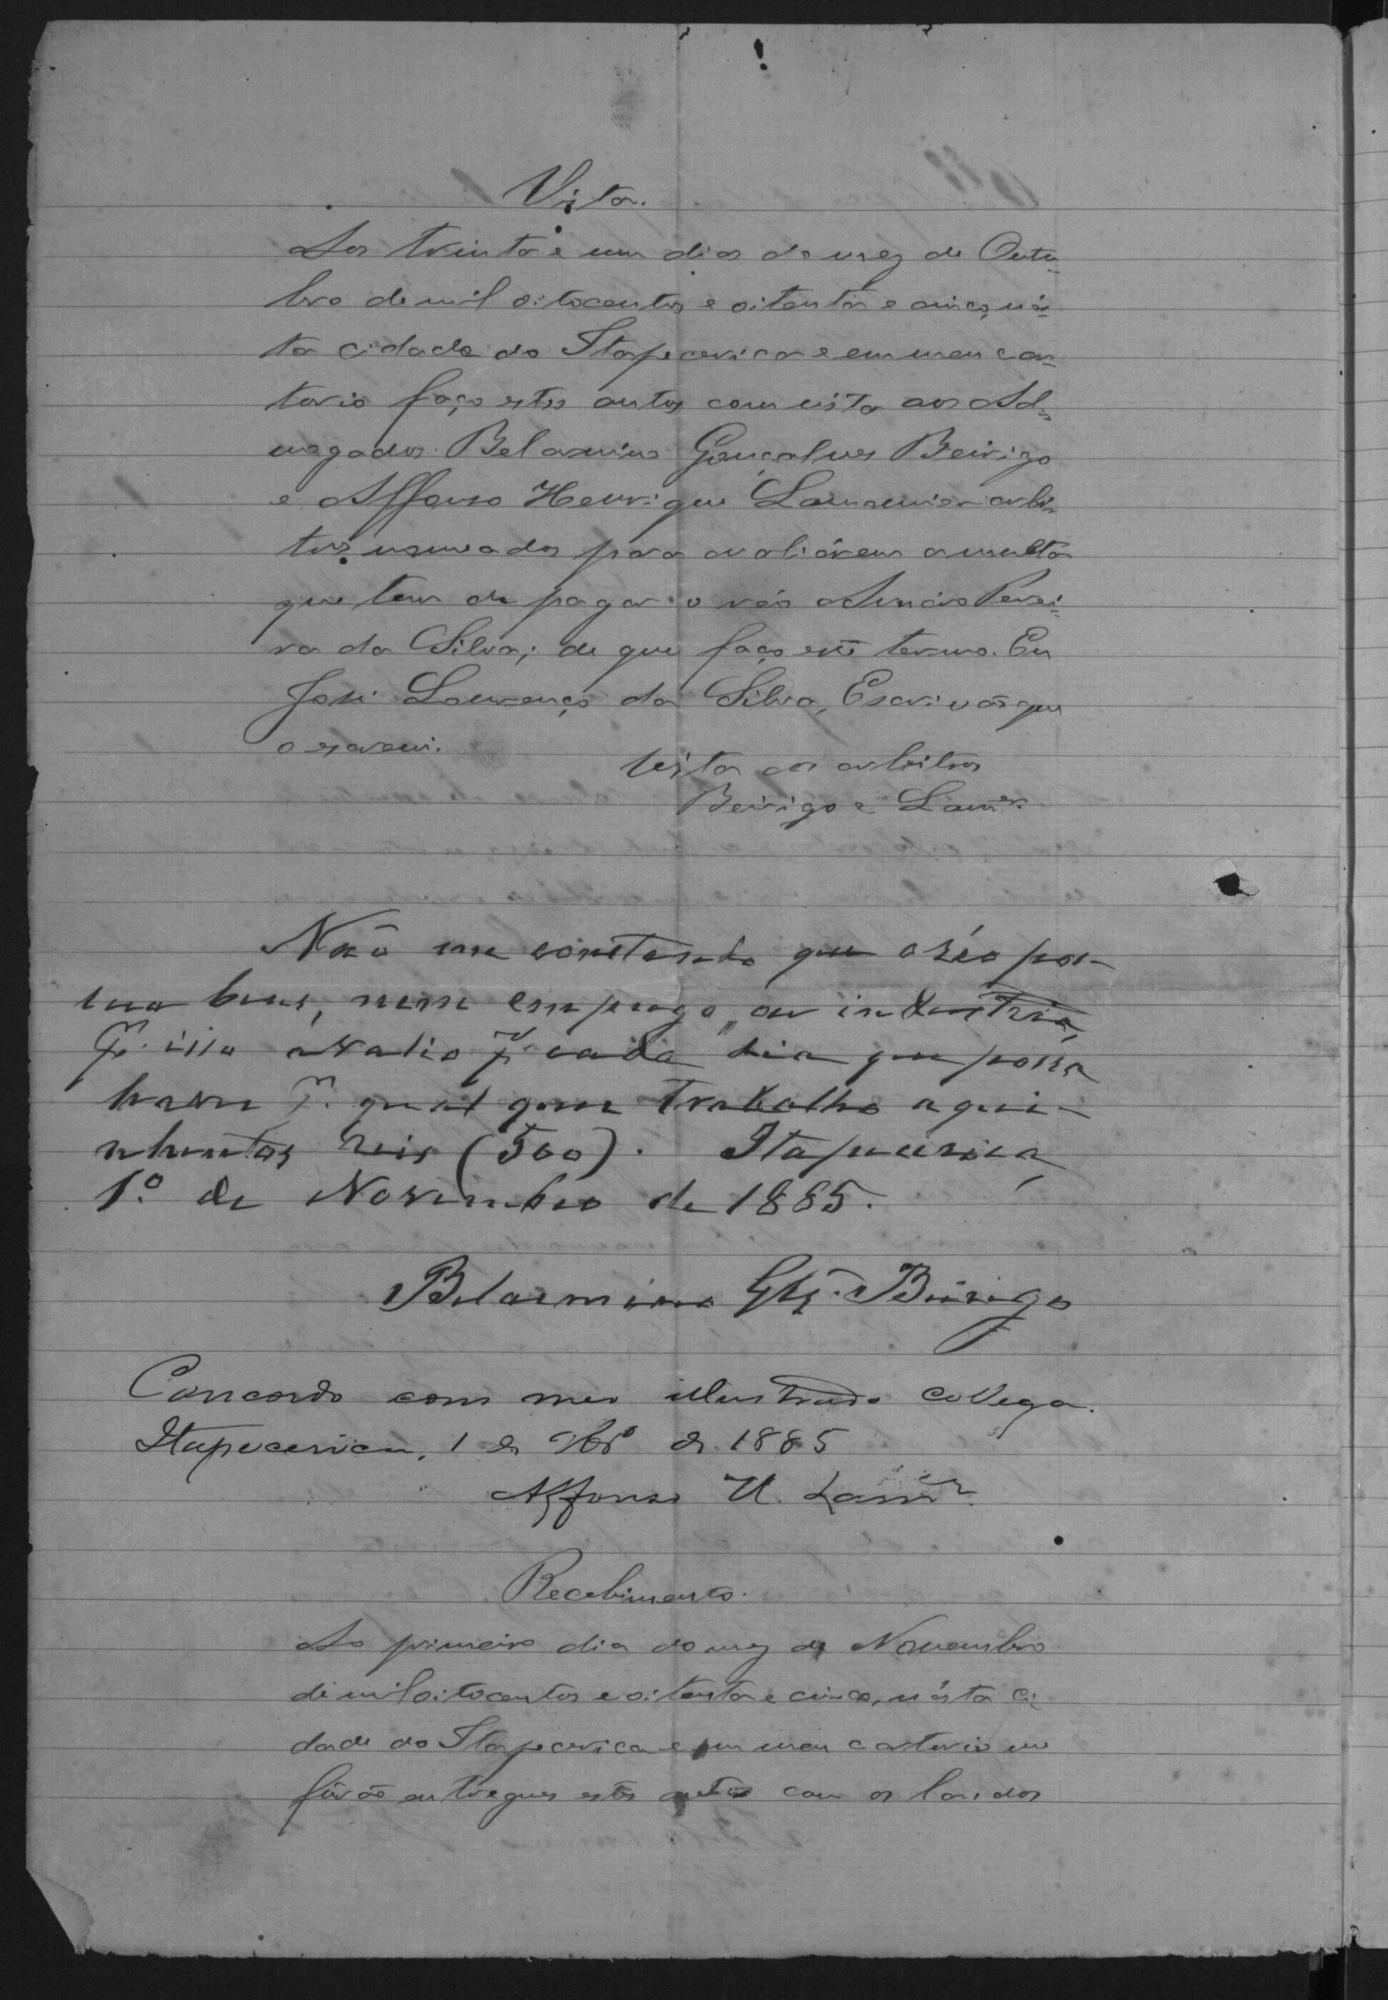 Vista.
Aos trinta e um dias do mez de Outu-
bro de mil oitocentos e oitenta e cinco, nés-
ta cidade do Itapecerica e em meu car-
torio faço estes autos com vista aos Ad-
vogados Belarmino Gonçalves Beirigo
e Affonso Henrique Lamounier arbi-
tros nomeados para avaliárem a multa
que tem de pagar o réo Perei-
ra da Silva; de que faço este termo. Eu
José Lourenço da Silva, Escrivão que
o escrevi.
Vista aos arbitros
Beirigo e Lamer.
Não me constando que o réo pos-
sua bens, nem emprego, ou industria,
pr. isso avalio pr cada dia que possa
haver pr. qual quer trabalho a qui-
nhentos reis (500). Itapecerica,
1º. de Novembro de 1885.
Belarmino Glz. Beirigo
Concordo com meo illustrado collega.
Itapecerica, 1 de 9bro de 1885
Affonso H. Lamer.
Recebimento.
Ao primeiro dia do mez de Novembro
de mil oitocentos e oitenta e cinco, nésta ci-
dade do Itapecerica e em meu cartorio me
fôrão entregues estes autos com os laudos